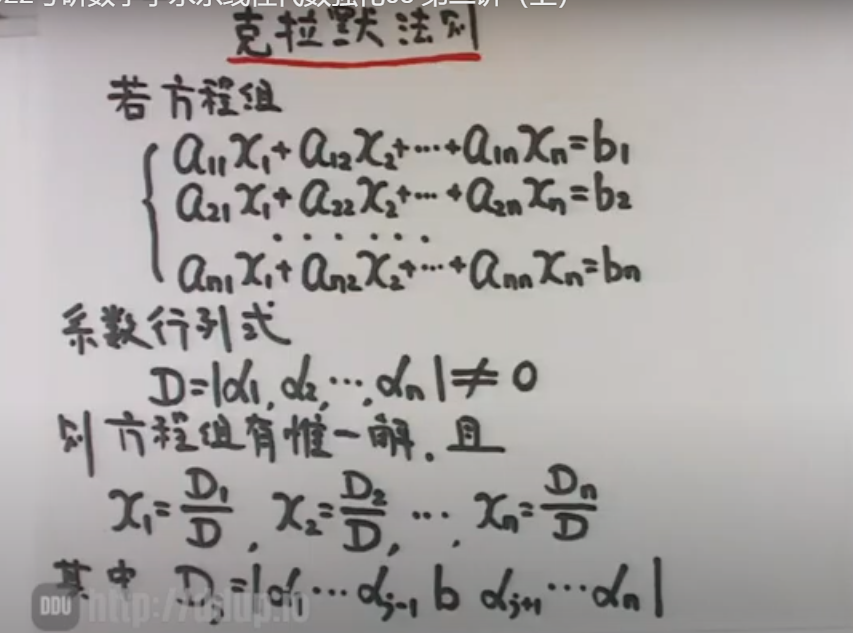 克拉默法则
若方程组
a₁₁x₁+a₁₂x₂+⋯+a₁ₙxₙ=b₁
a₂₁x₁+a₂₂x₂+⋯+a₂ₙxₙ=b₂
······
aₙ₁x₁+aₙ₂x₂+⋯+aₙₙxₙ=bₙ
系数行列式
D=|α₁,α₂,⋯,αₙ|≠0
则方程组有惟一解.且
x₁=D₁/D, x₂=D₂/D, ⋯, xₙ=Dₙ/D
其中 Dⱼ=|α₁⋯αⱼ₋₁ b αⱼ₊₁⋯αₙ|
DDU http://ddup.io